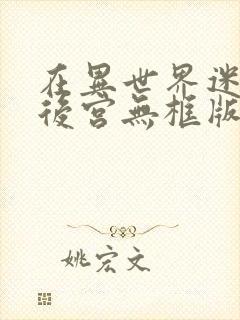 在異世界迷
後宮無框版
姚宏文